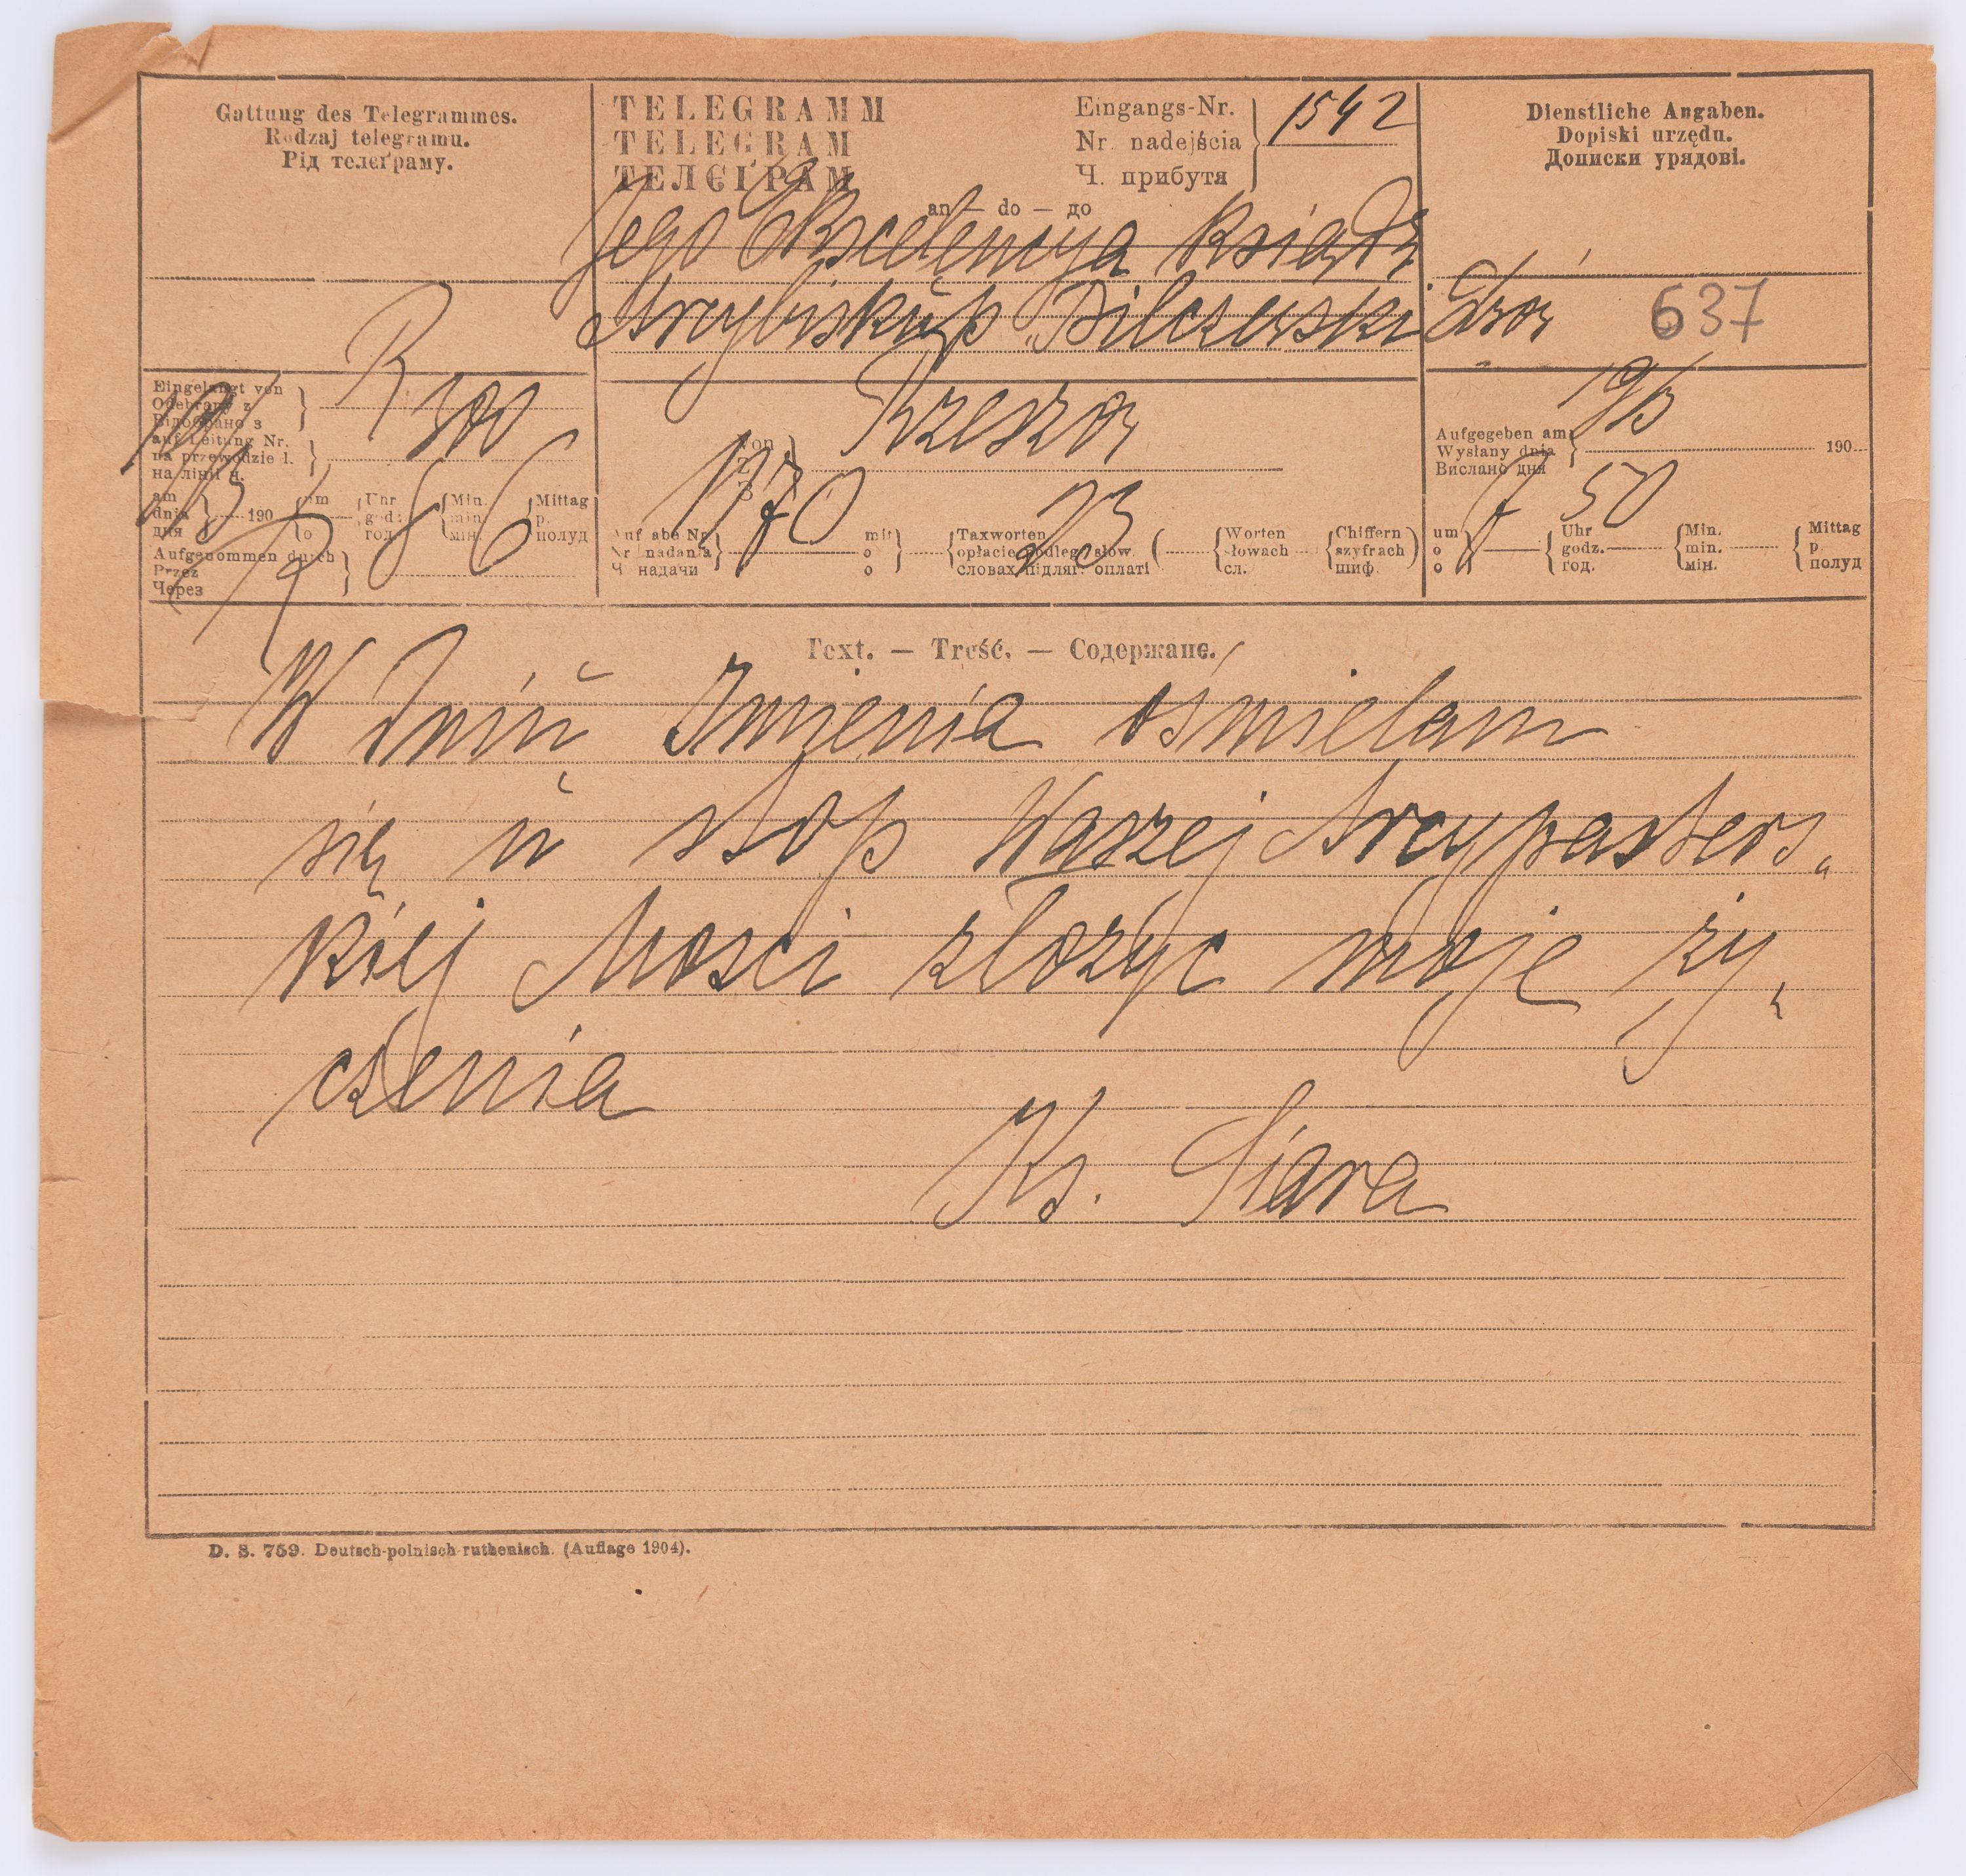 Gattung des Telegrammes.
Rodzaj telegramu.
Рід телєґраму.
TELEGRAMM
TELEGRAM
ТЕЛЄҐРАМ
Eingangs-Nr.
Nr. nadejścia
Ч. прибутя
1542
Dienstliche Angaben.
Dopiski urzędu.
Дописки урядові.
an — do — до
Jego Ekscelencya ksiądz
Arcybiskup Bilczewski Lwow
637
Eingelangt von
Odebrany z
Відобрано з
R 300
auf Leitung Nr.
na przewodzie l.
на лінії ч.
am
dnia
дня
190
um
o
Uhr
godz.
год.
8
Min.
min.
мін.
6
Mittag
p.
полуд
Aufgenommen durch
Przez
Через
von
z
з
Rzeszow
Aufgabe Nr.
Nr nadania
Ч. надачи
1770
mit
o
o
Taxworten
opłacie podleg. słow.
словах підляг. оплаті
23
Worten
słowach
сл.
Chiffern
szyfrach
шиф.
19/3
Aufgegeben am
Wysłany dnia
Вислано дня
190
um
o
o
7 50
Uhr
godz.
год.
Min.
min.
мін.
Mittag
p.
полуд
Text. — Treść. — Содержанє.
W dniu Imienia ośmielam
się u stop Waszej Arcypasters„
kiej Mosci zlozyc moje zy„
czenia
Ks. Siara
D. S. 759. Deutsch-polnisch-ruthenisch. (Auflage 1904).